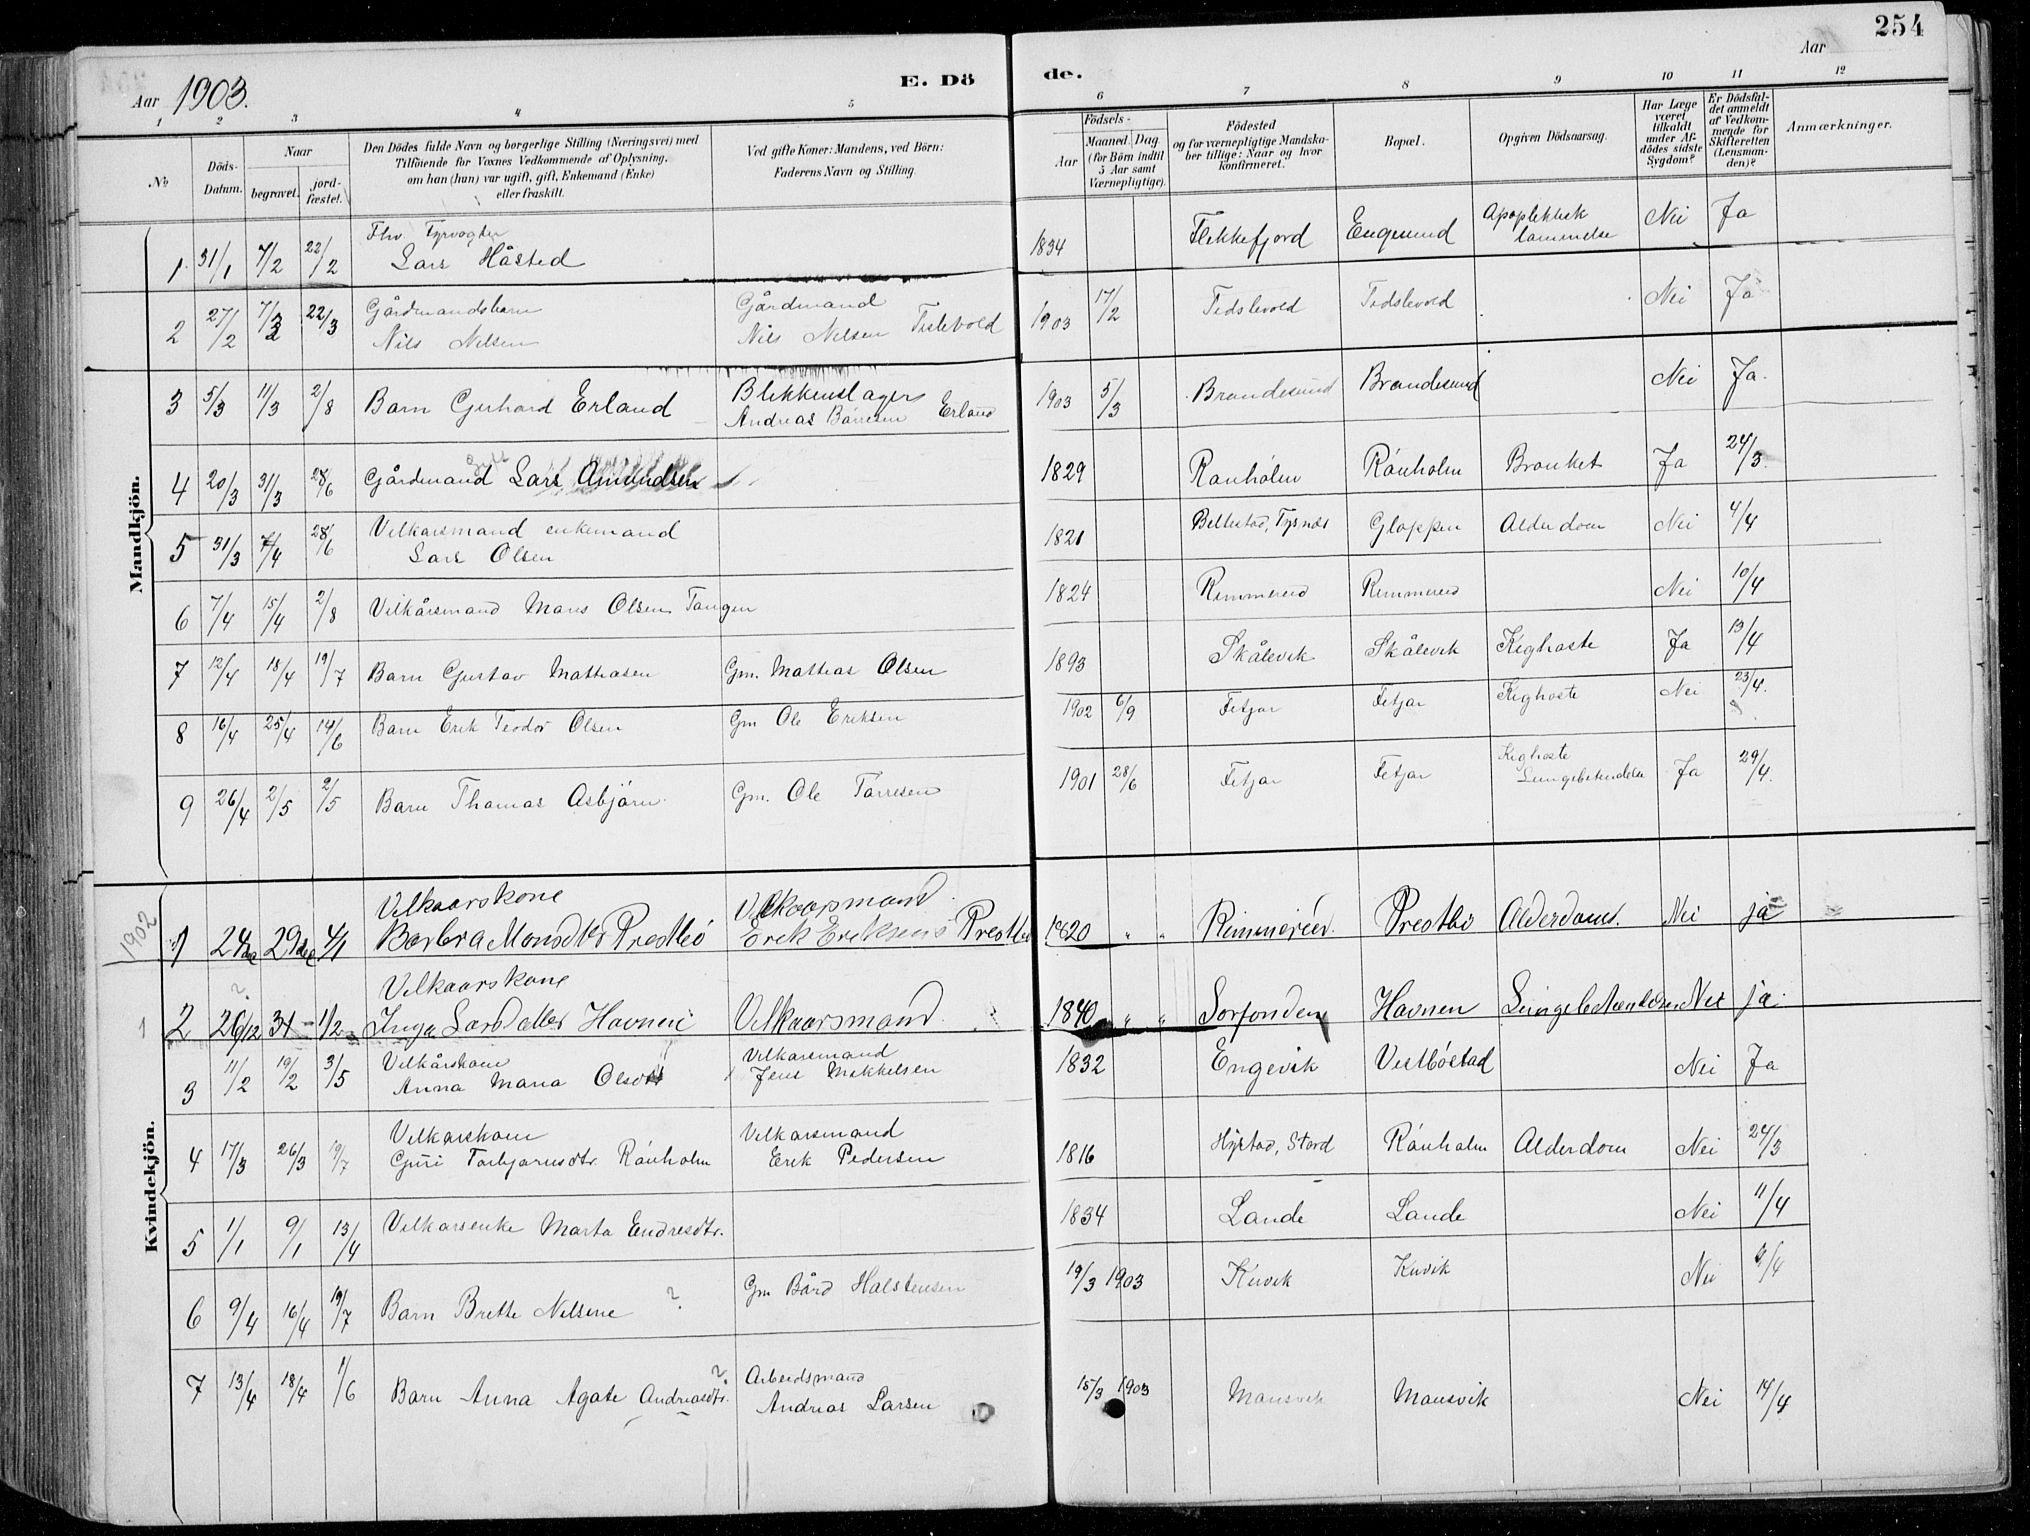 254
Aar 1903.
E. Döde.
Aar
1 2 3 4 5 6 7 8 9 10 11 12
No
Döds-Datum.
Naar
begravet.
jordfæstet.
Den Dödes fulde Navn og borgerlige Stilling (Næringsvei) med
Tilföiende for Voxnes Vedkommende af Oplysning,
om han (hun) var ugift, gift, Enkemand (Enke)
eller fraskilt.
Ved gifte Koner: Mandens, ved Börn:
Faderens Navn og Stilling.
Födsels-
Aar
Maaned. Dag.
(for Börn indtil
5 Aar samt
Værnepligtige).
Födested
og for værnepligtige Mandskaber tillige: Naar og hvor
konfirmeret.
Bopæl.
Opgiven Dödsaarsag.
Har Læge
været
tilkaldt
under Afdödes sidste
Sygdom?
Er Dödsfaldet anmeldt
af Vedkommende for
Skifteretten
(Lensmanden)?
Anmærkninger.
Mandkjön.
1 31/1 7/2 22/2 Fhv. Fyrvogter Lars Håsted 1834 Flekkefjord Engesund Apoplektisk lammelse Nei Ja
2 27/2 7/3 22/3 Gårdmandsbarn Nils Nelsen Gårdmand Nils Nelsen Tislevold 1903 17/2 Tidslevold Tidslevold Nei Ja
3 5/3 11/3 2/8 Barn Gerhard Erland Blikkenslager Andreas Børresen Erland 1903 5/3 Brandesund Brandesund Nei Ja.
4 20/3 31/3 28/6 Gårdmand Lars Amundsen 1829 Rønholm Rónholm Bronket Ja 24/3.
5 31/3 7/4 28/6 Vilkarsmand enkemand Lars Olsen 1821 Bellestad, Tysnæs Gloppen Alderdom Nei 4/4
6 7/4 15/4 2/8 Vilkårsmand Mans Olsen Tangen 1824 Rimmereid Rimmereid Nei 10/4
7 12/4 18/4 19/7 Barn Gustav Mathiasen Gm. Mathias Olsen 1893 Skålevik Skålevik Kighoste Ja 13/4
8 16/4 25/4 14/6 Barn Erik Teodor Olsen Gm Ole Eriksen 1902 6/9 Fitjar Fitjar Kighoste Nei 23/4.
9 26/4 2/5 2/5 Barn Thomas Asbjörn. Gm. Ole Tørresen 1901 28/6 Fitjar Fitjar Kighoste Lungebetendelse Ja 29/4.
Kvindekjön.
1902
1 24/12 29/12 4/1 Vilkaarskone Barbra Monsdtr Prestbö Vilkaarsmand Erik Eriksens Prestbö 1820 " " Rimmereid. Prestbö Alderdoms. Nei ja
2 26/12 31 1/2 Vilkaarskone Inga Larsdatter Havnen Vilkaarsmand. 1840 " " Sorfonden Havnen Lungebetændelse Nei ja.
3 11/2 19/2 3/5 Vilkårskone Anna Maria Olsdtr Vilkarsmand Jens Mikkelsen 1832 Engevik Vestbóstad Nei Ja
4 17/3 26/3 19/7 Vilkarskone Guri Torbjørnsdtr. Rónholm Vilkarsmand Erik Pedersen 1816 Hystad, Stord Rónholm Alderdom Nei 24/3
5 1/1 9/1 13/4 Vilkarsenke Marta Endresdtr. 1834 Lande Lande Nei 11/4
6 9/4 16/4 19/7 Barn Brette Nilsine ? Gm Bård Halstensen 19/3 1903 Kivik Kivik Nei 9/4
7 13/4 18/4 1/6 Barn Anna Agate Andreasdtr. ? Arbeidsmand Andreas Larsen 15/3 1903 Mansvik Mansvik Nei 14/4